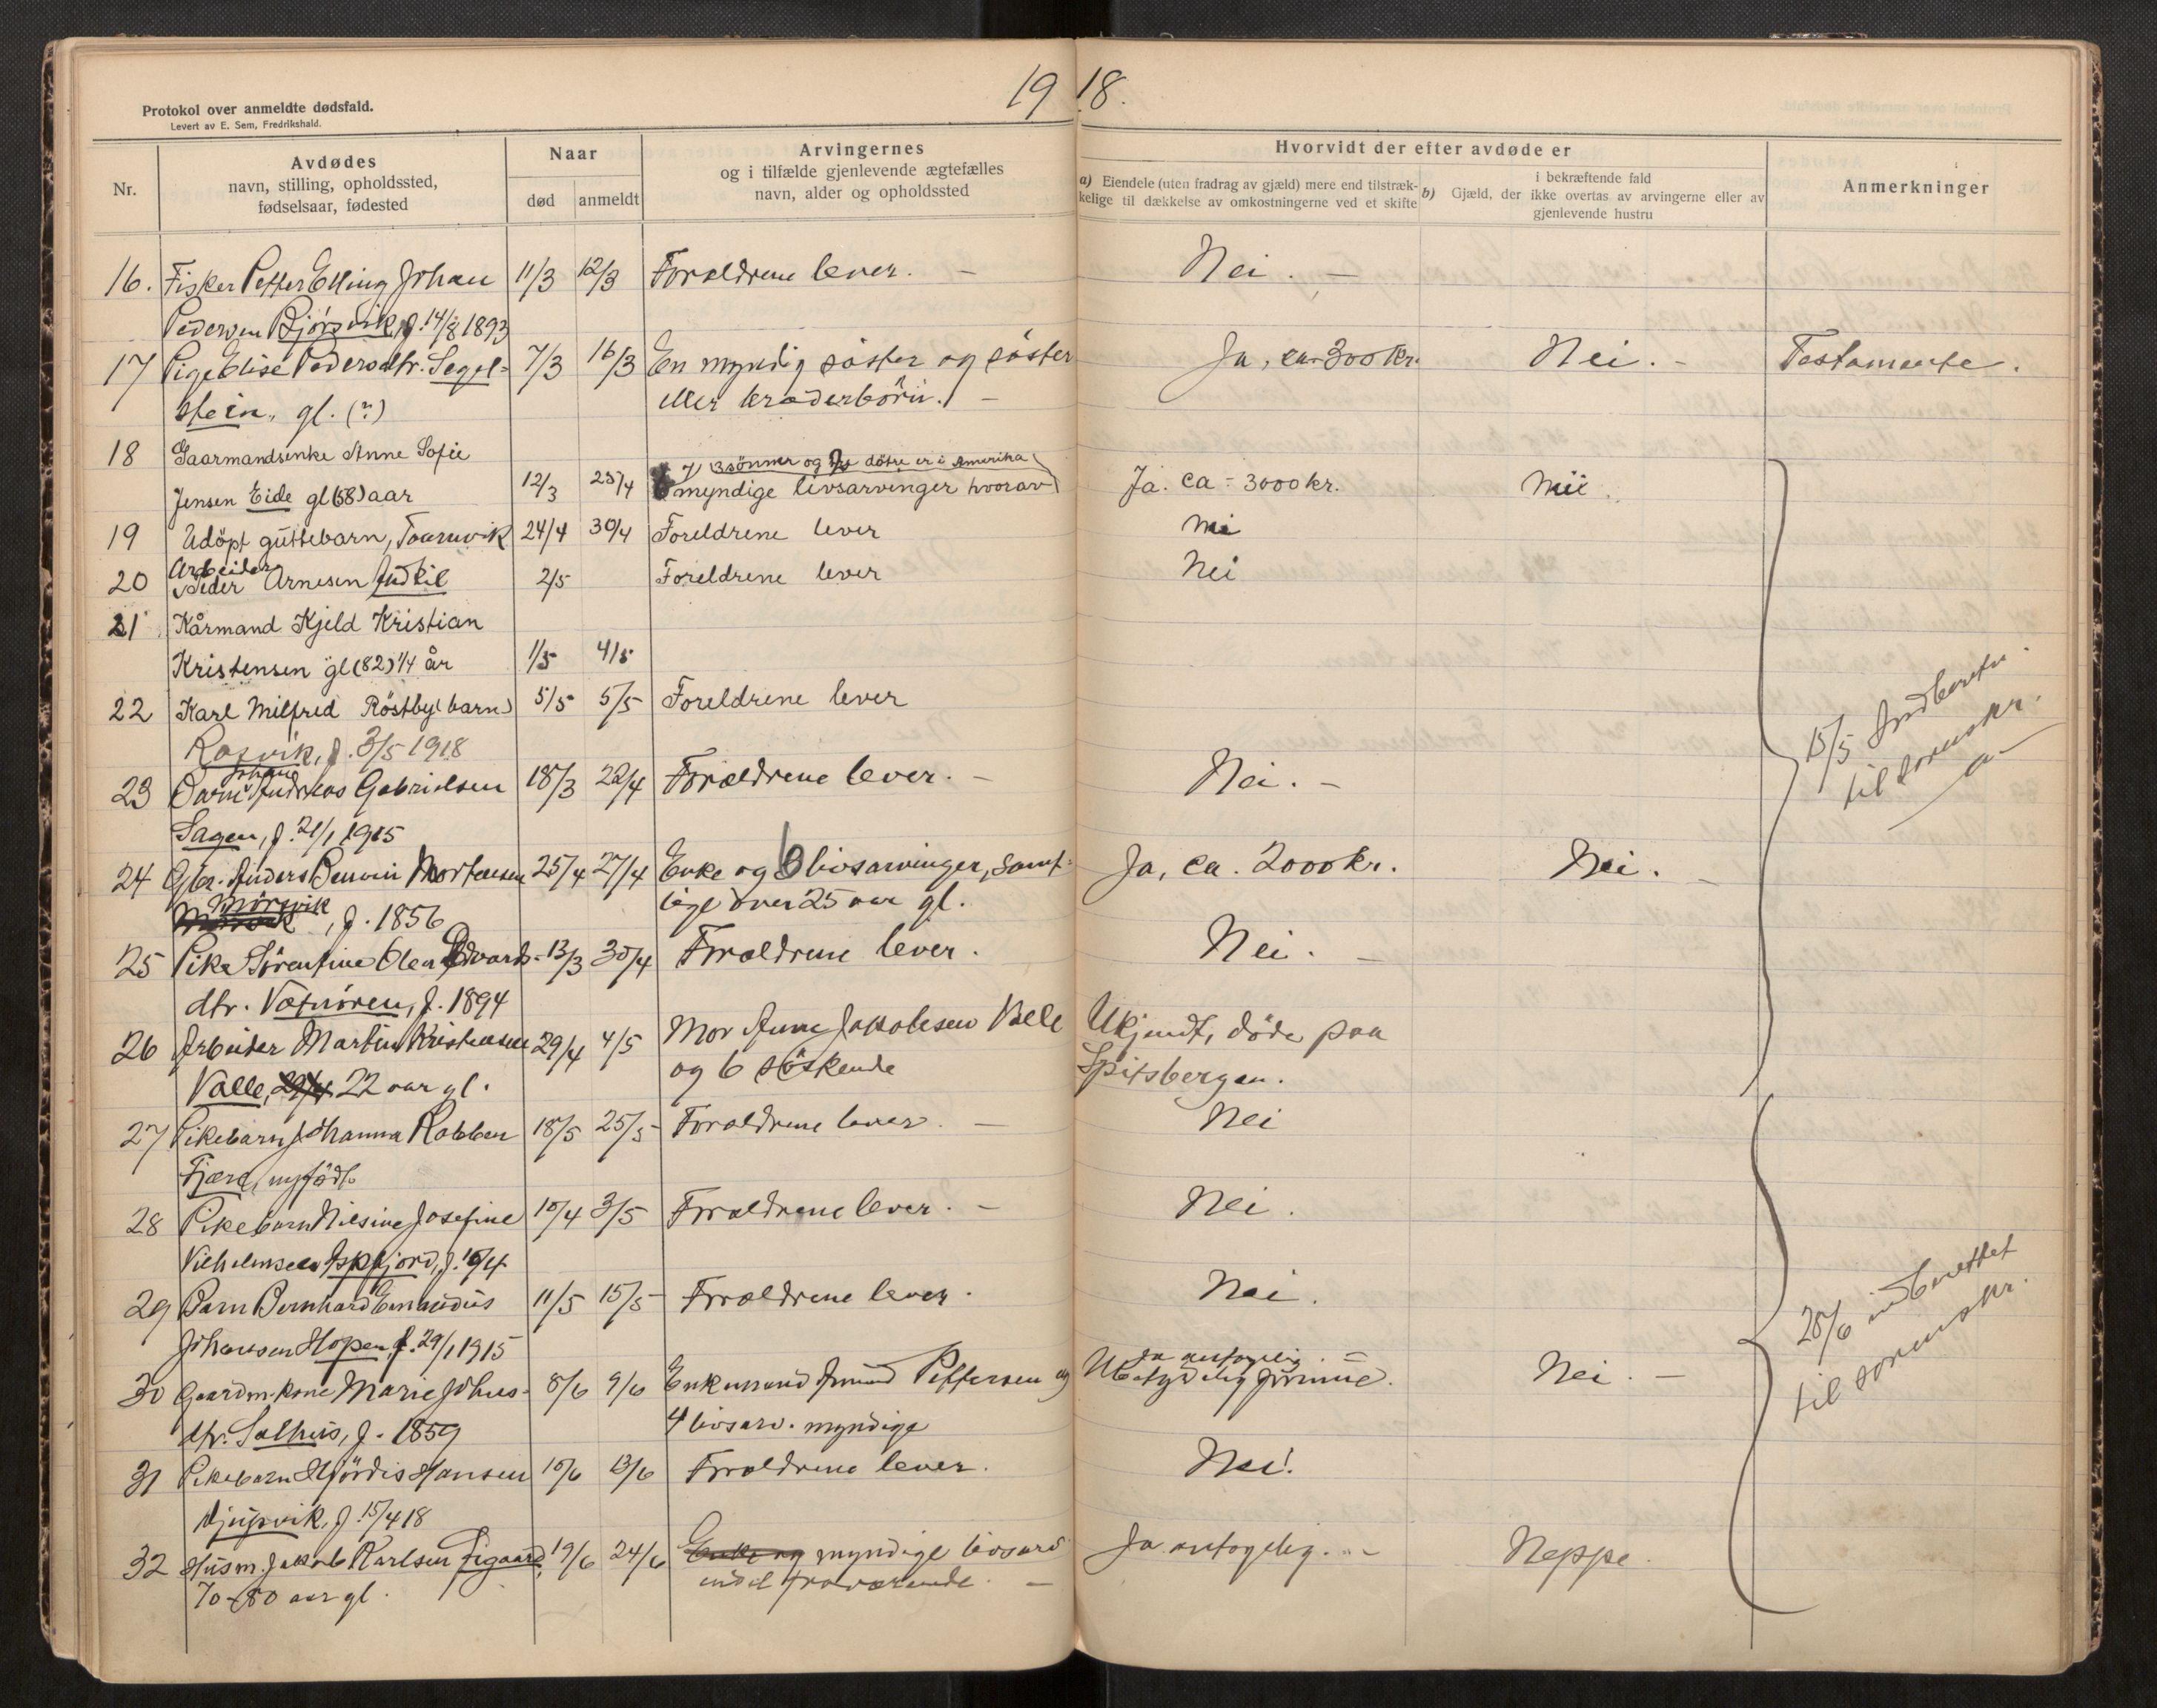 19 18.
Protokol over anmeldte dødsfald.
Levert av E. Sem, Fredrikshald.
Nr.
Avdødes
navn, stilling, opholdssted,
fødselsaar, fødested
Naar
død anmeldt
Arvingernes
og i tilfælde gjenlevende ægtefælles
navn, alder og opholdssted
Hvorvidt der efter avdøde er
a) Eiendele (uten fradrag av gjæld) mere end tilstræk-
kelige til dækkelse av omkostningerne ved et skifte
i bekræftende fald
b) Gjæld, der ikke overtas av arvingerne eller av
gjenlevende hustru
Anmerkninger
16. Fisker Petter Elling Johan 11/3 12/3 Forældrene lever. - Nei. -
Pedersen Bjørsvik, f. 14/8 1893
17 Pige Elise Pedersdtr. Segel- 7/3 16/3 En myndig søster og søster Ja, ca. 300 kr. Nei. - Testamente.
stein, gl. (?) eller broderbørn. -
18 Gaarmandsenke Anne Sofie
3 sönner og döttre er i Amerika
Jensen Eide gl (58) aar 12/3 25/4 myndige livsarvinger hvorav Ja. ca - 3000 kr. Nei.
19 Udöpt guttebarn, Tarnvik 24/4 30/4 Foreldrene lever Nei
Arbeider
20 Peder Arnesen Indkil 2/5 Foreldrene lever Nei
21 Kårmand Kjeld Kristian
Kristensen gl (82) 1/4 år 1/5 4/5
22 Karl Milfred Röstby (barn) 5/5 5/5 Foreldrene lever
Rosvik, f. 3/5 1918
Johan
23 Barn Andreas Gabrielsen 18/3 22/4 Forældrene lever. - Nei. -
Sagen, f. 21/1 1915
24 Gbr. Anders Benoni Mortensen 25/4 27/4 Enke og 6 livsarvinger, samt- Ja, ca. 2000 kr. Nei. -
Mørsvik, f. 1856 lige over 25 aar gl.
25 Pike Sørentine Olea Edvards- 13/3 30/4 Forældrene lever. Nei. -
dtr. Vatnøren, f. 1894
26 Arbeider Martin Kristensen 29/4 4/5 Mor Anne Jakobsen Valle Ukjendt, døde paa
Valle, 29/4 22 aar gl. og 6 søskende Spitsbergen.
15/5 Indberette
til sorenskr.
27 Pikebarn Johanna Kobben 18/5 25/5 Forældrene lever. - Nei
Fjærd, nyfødt
28 Pikebarn Nilsine Josefine 10/4 3/5 Forældrene lever. - Nei.
Vilhelmsen Aspfjord, f. 10/4
29 Barn Bernhard Emandius 11/5 15/5 Forældrene lever. Nei.
Johansen Hopen, f. 29/1 1915
Ja antagelig. -
30 Gaardm.kone Marie Johns- 8/6 9/6 Enkemand Amund Pettersen og Ubetydelig formue. Nei. -
dtr. Salhus, f. 1859 4 livsarv. myndige
31 Pikebarn Hjørdis Hansen 10/6 13/6 Forældrene lever. Nei.
Djupvik, f. 15/4 18
32 Husm. Jakob Karlsen Figaard, 19/6 24/6 Enke og myndige livsarv Ja antagelig. - Neppe.
70-80 aar gl. endel fraværende. -
28/6 indberettet
til sorenskr.